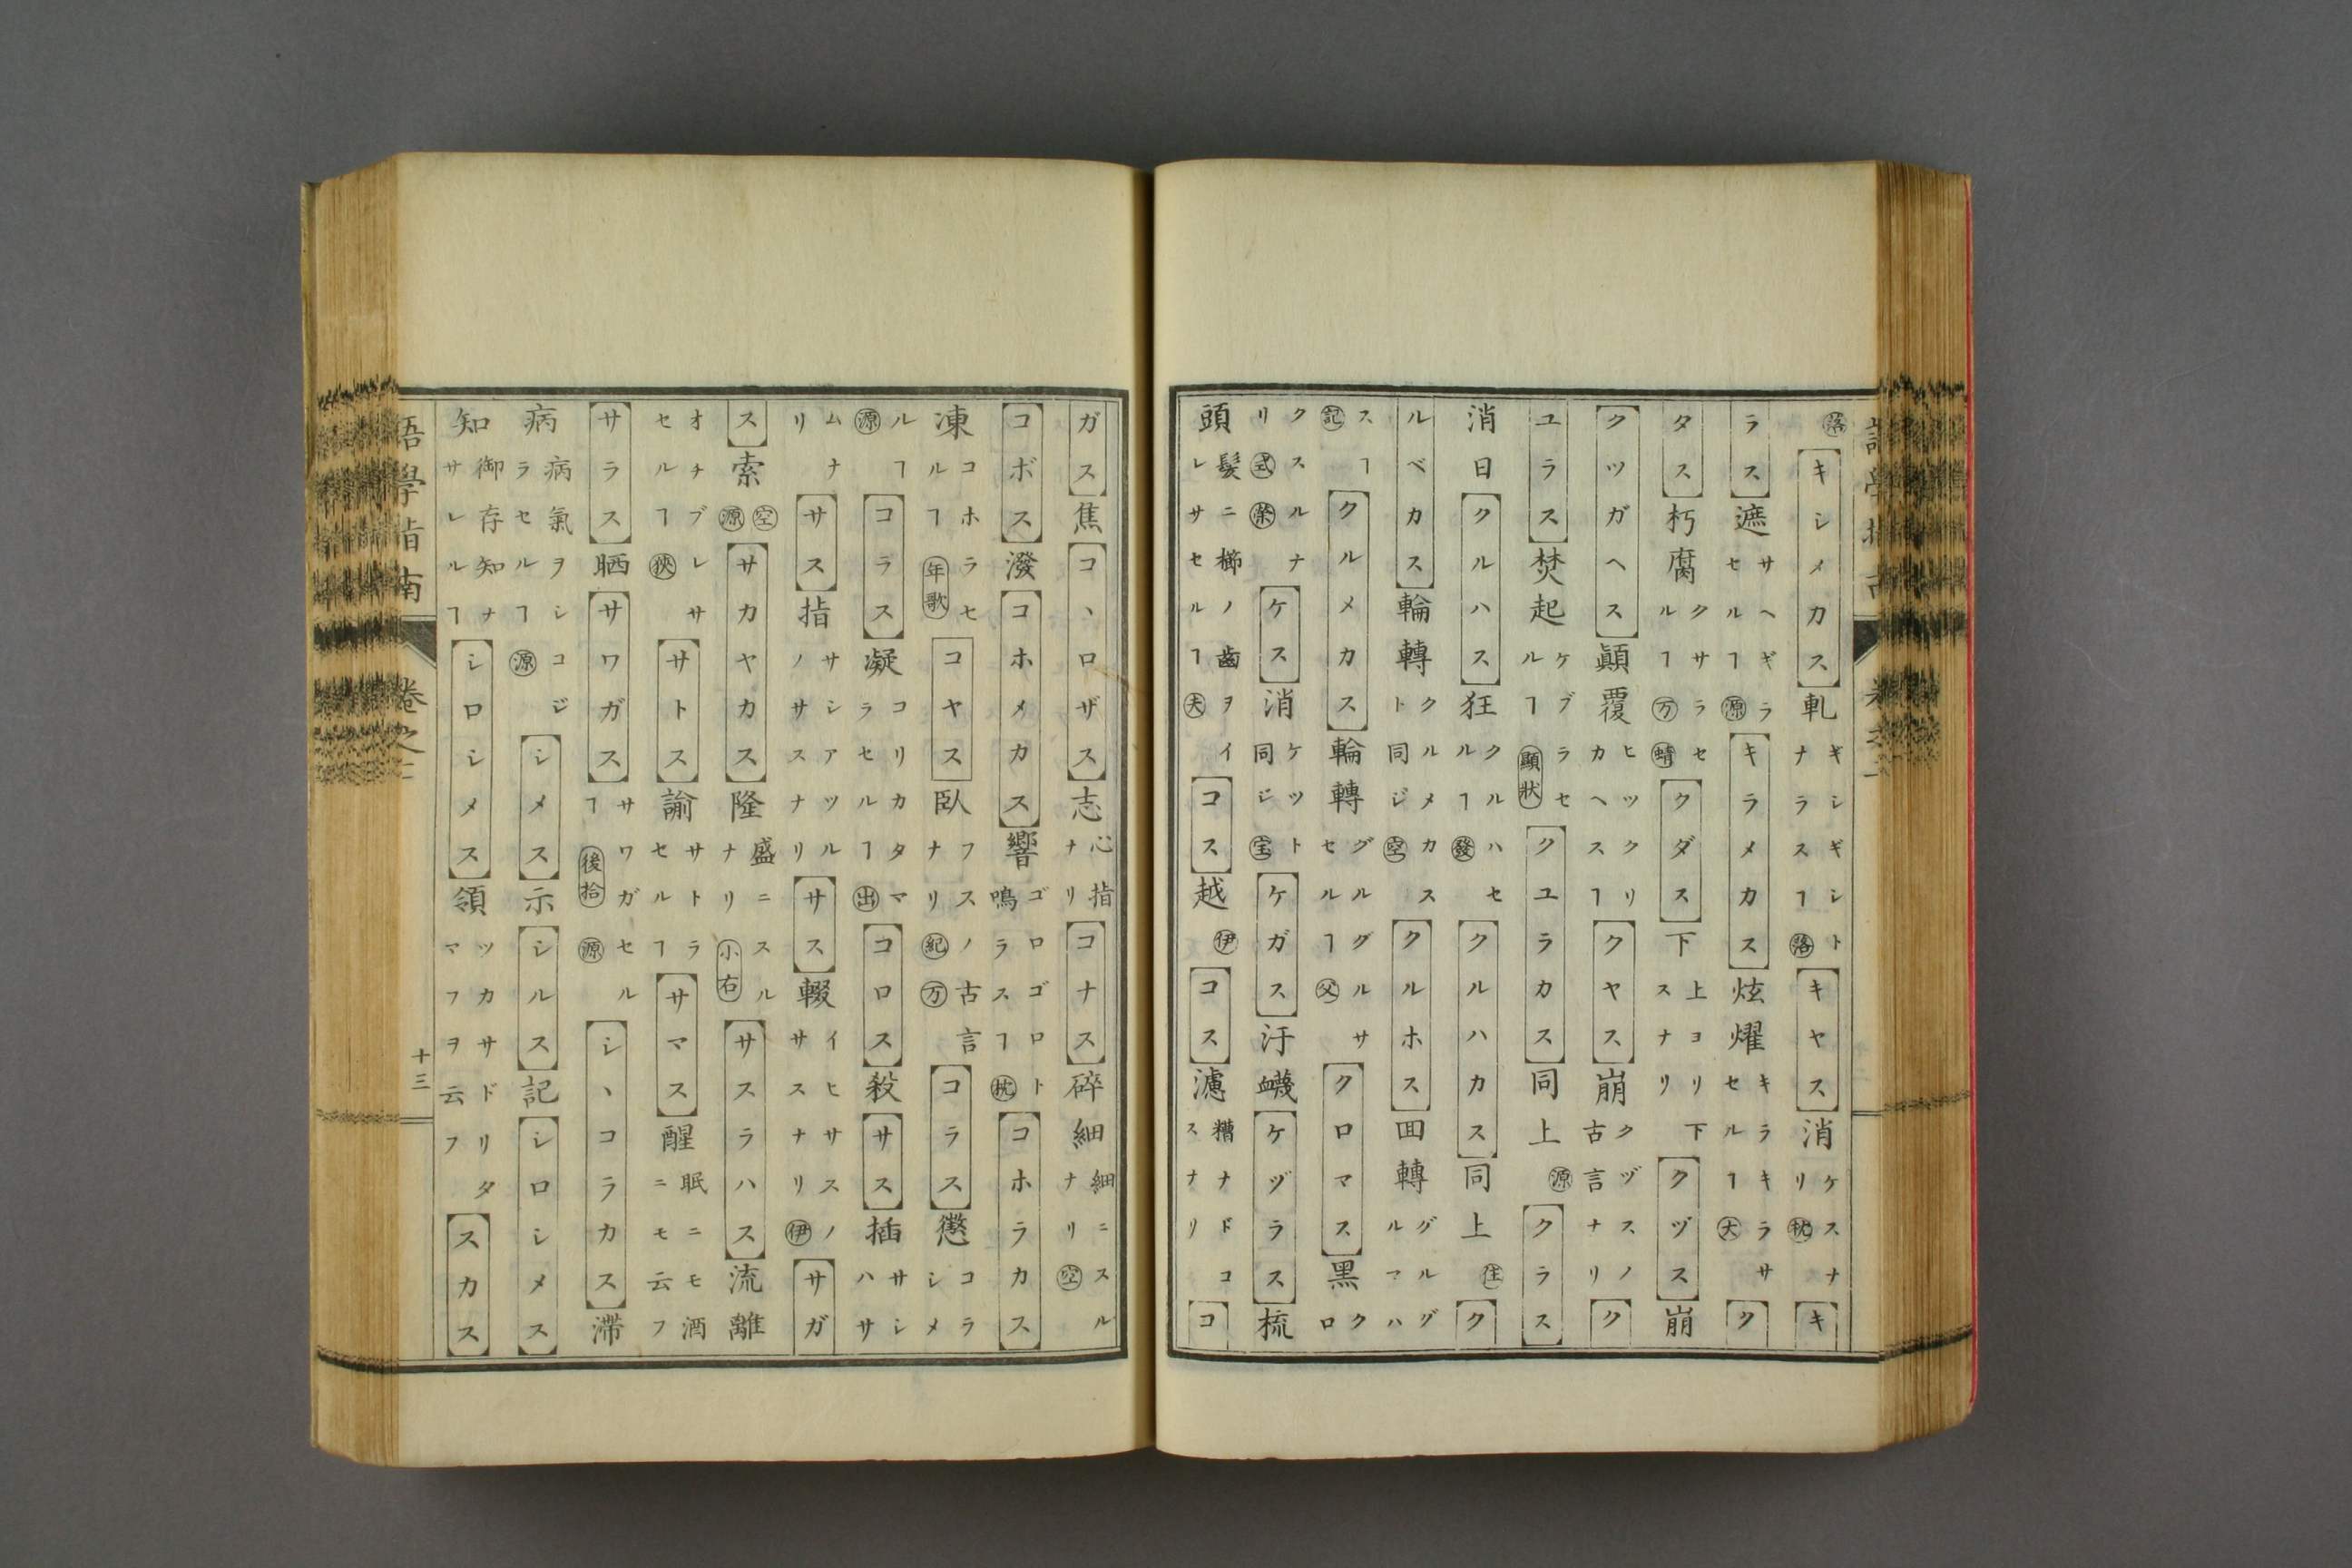 落 キシメカス 軋 ギシギシト ナラスヿ 落 キヤス 消 ケスナ リ 枕 キ
ラス 遮 サヘギラ セルヿ 源 キラメカス 炫燿 キラキラサ セルヿ 大 ク
タス 朽腐 クサラセ ルヿ 万 蜻 クダス 下 上ヨリ下 スナリ クヅス 崩
クツガヘス 顚覆 ヒツクリ カヘスヿ クヤス 崩 クヅスノ 古言ナリ ク
ユラス 焚起 ケブラセ ルヿ 顯狀 クユラカス 同上 源 クラス
消日 クルハス 狂 クルハセ ルヿ 發 クルハカス 同上 住 ク
ルベカス 輪轉 クルメカス ト同ジ 空 クルホス 回轉 グルグ ルマハ
スヿ 記 クルメカス 輪轉 グルグルサ セルヿ 父 クロマス 黑 ク ロ
クスルナ リ 式 榮 ケス 消 ケツト 同ジ 宝 ケガス 汙衊 ケヅラス 梳
頭 髮ニ櫛ノ齒ヲイ レサセルヿ 大 コス 越 伊 コス 濾 糟ナドコ スナリ コ
ガス 焦 コヽロザス 志 心指 ナリ コナス 碎細 細ニスル ナリ 空
コボス 潑 コホメカス 響 ゴロゴロト 鳴ラスヿ 枕 コホラカス
凍 コホラセ ルヿ 年歌 コヤス 臥 フスノ古言 ナリ 紀 万 コラス 懲 コラ シメ
ルヿ 源 コラス 凝 コリカタマ ラセルヿ 出 コロス 殺 サス 插 サシ ハサ
ムナ リ サス 指 サシアツル ノサスナリ サス 輟 イヒサスノ サスナリ 伊 サガ
ス 索 空 源 サカヤカス 隆 盛ニスル ナリ 小右 サスラハス 流離
オチブレサ セルヿ 狹 サトス 諭 サトラ セルヿ サマス 醒 眠ニモ酒 ニモ云フ
サラス 晒 サワガス サワガセル ヿ 後拾 源 シヽコラカス 滯
病 病氣ヲシコジ ラセルヿ 源 シメス 示 シルス 記 シロシメス
知 御存知ナ サレルヿ シロシメス 領 ツカサドリタ マフヲ云フ スカス
語學指南 卷之二 十三